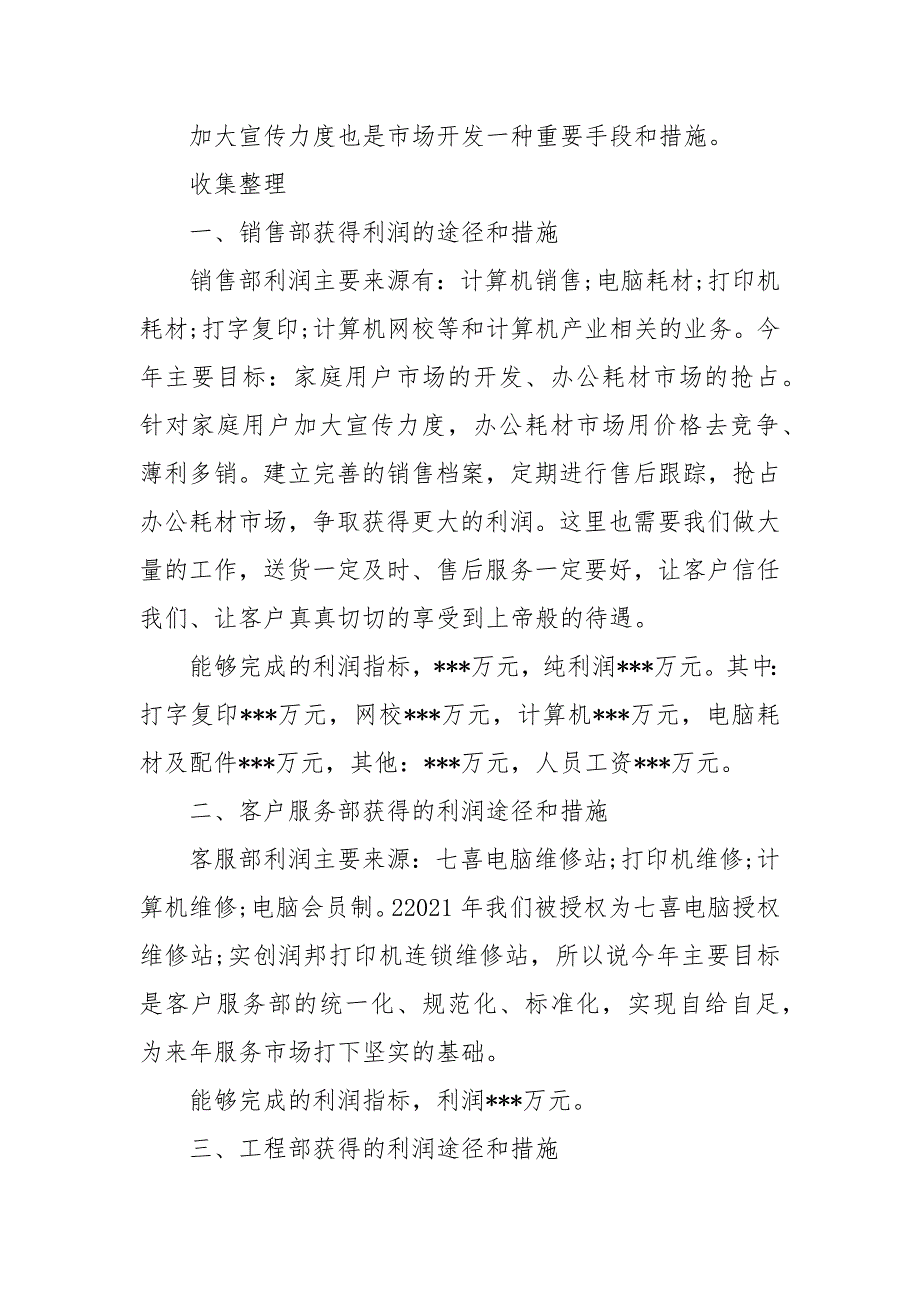 加大宣传力度也是市场开发一种重要手段和措施。
收集整理
一、销售部获得利润的途径和措施
销售部利润主要来源有：计算机销售;电脑耗材;打印机
耗材;打字复印;计算机网校等和计算机产业相关的业务。今
年主要目标：家庭用户市场的开发、办公耗材市场的抢占。
针对家庭用户加大宣传力度，办公耗材市场用价格去竞争、
薄利多销。建立完善的销售档案，定期进行售后跟踪，抢占
办公耗材市场，争取获得更大的利润。这里也需要我们做大
量的工作，送货一定及时、售后服务一定要好，让客户信任
我们、让客户真真切切的享受到上帝般的待遇。
能够完成的利润指标，***万元，纯利润***万元。其中：
打字复印***万元，网校***万元，计算机***万元，电脑耗
材及配件***万元，其他：***万元，人员工资***万元。
二、客户服务部获得的利润途径和措施
客服部利润主要来源：七喜电脑维修站;打印机维修;计
算机维修;电脑会员制。22021年我们被授权为七喜电脑授权
维修站;实创润邦打印机连锁维修站，所以说今年主要目标
是客户服务部的统一化、规范化、标准化，实现自给自足，
为来年服务市场打下坚实的基础。
能够完成的利润指标，利润***万元。
三、工程部获得的利润途径和措施